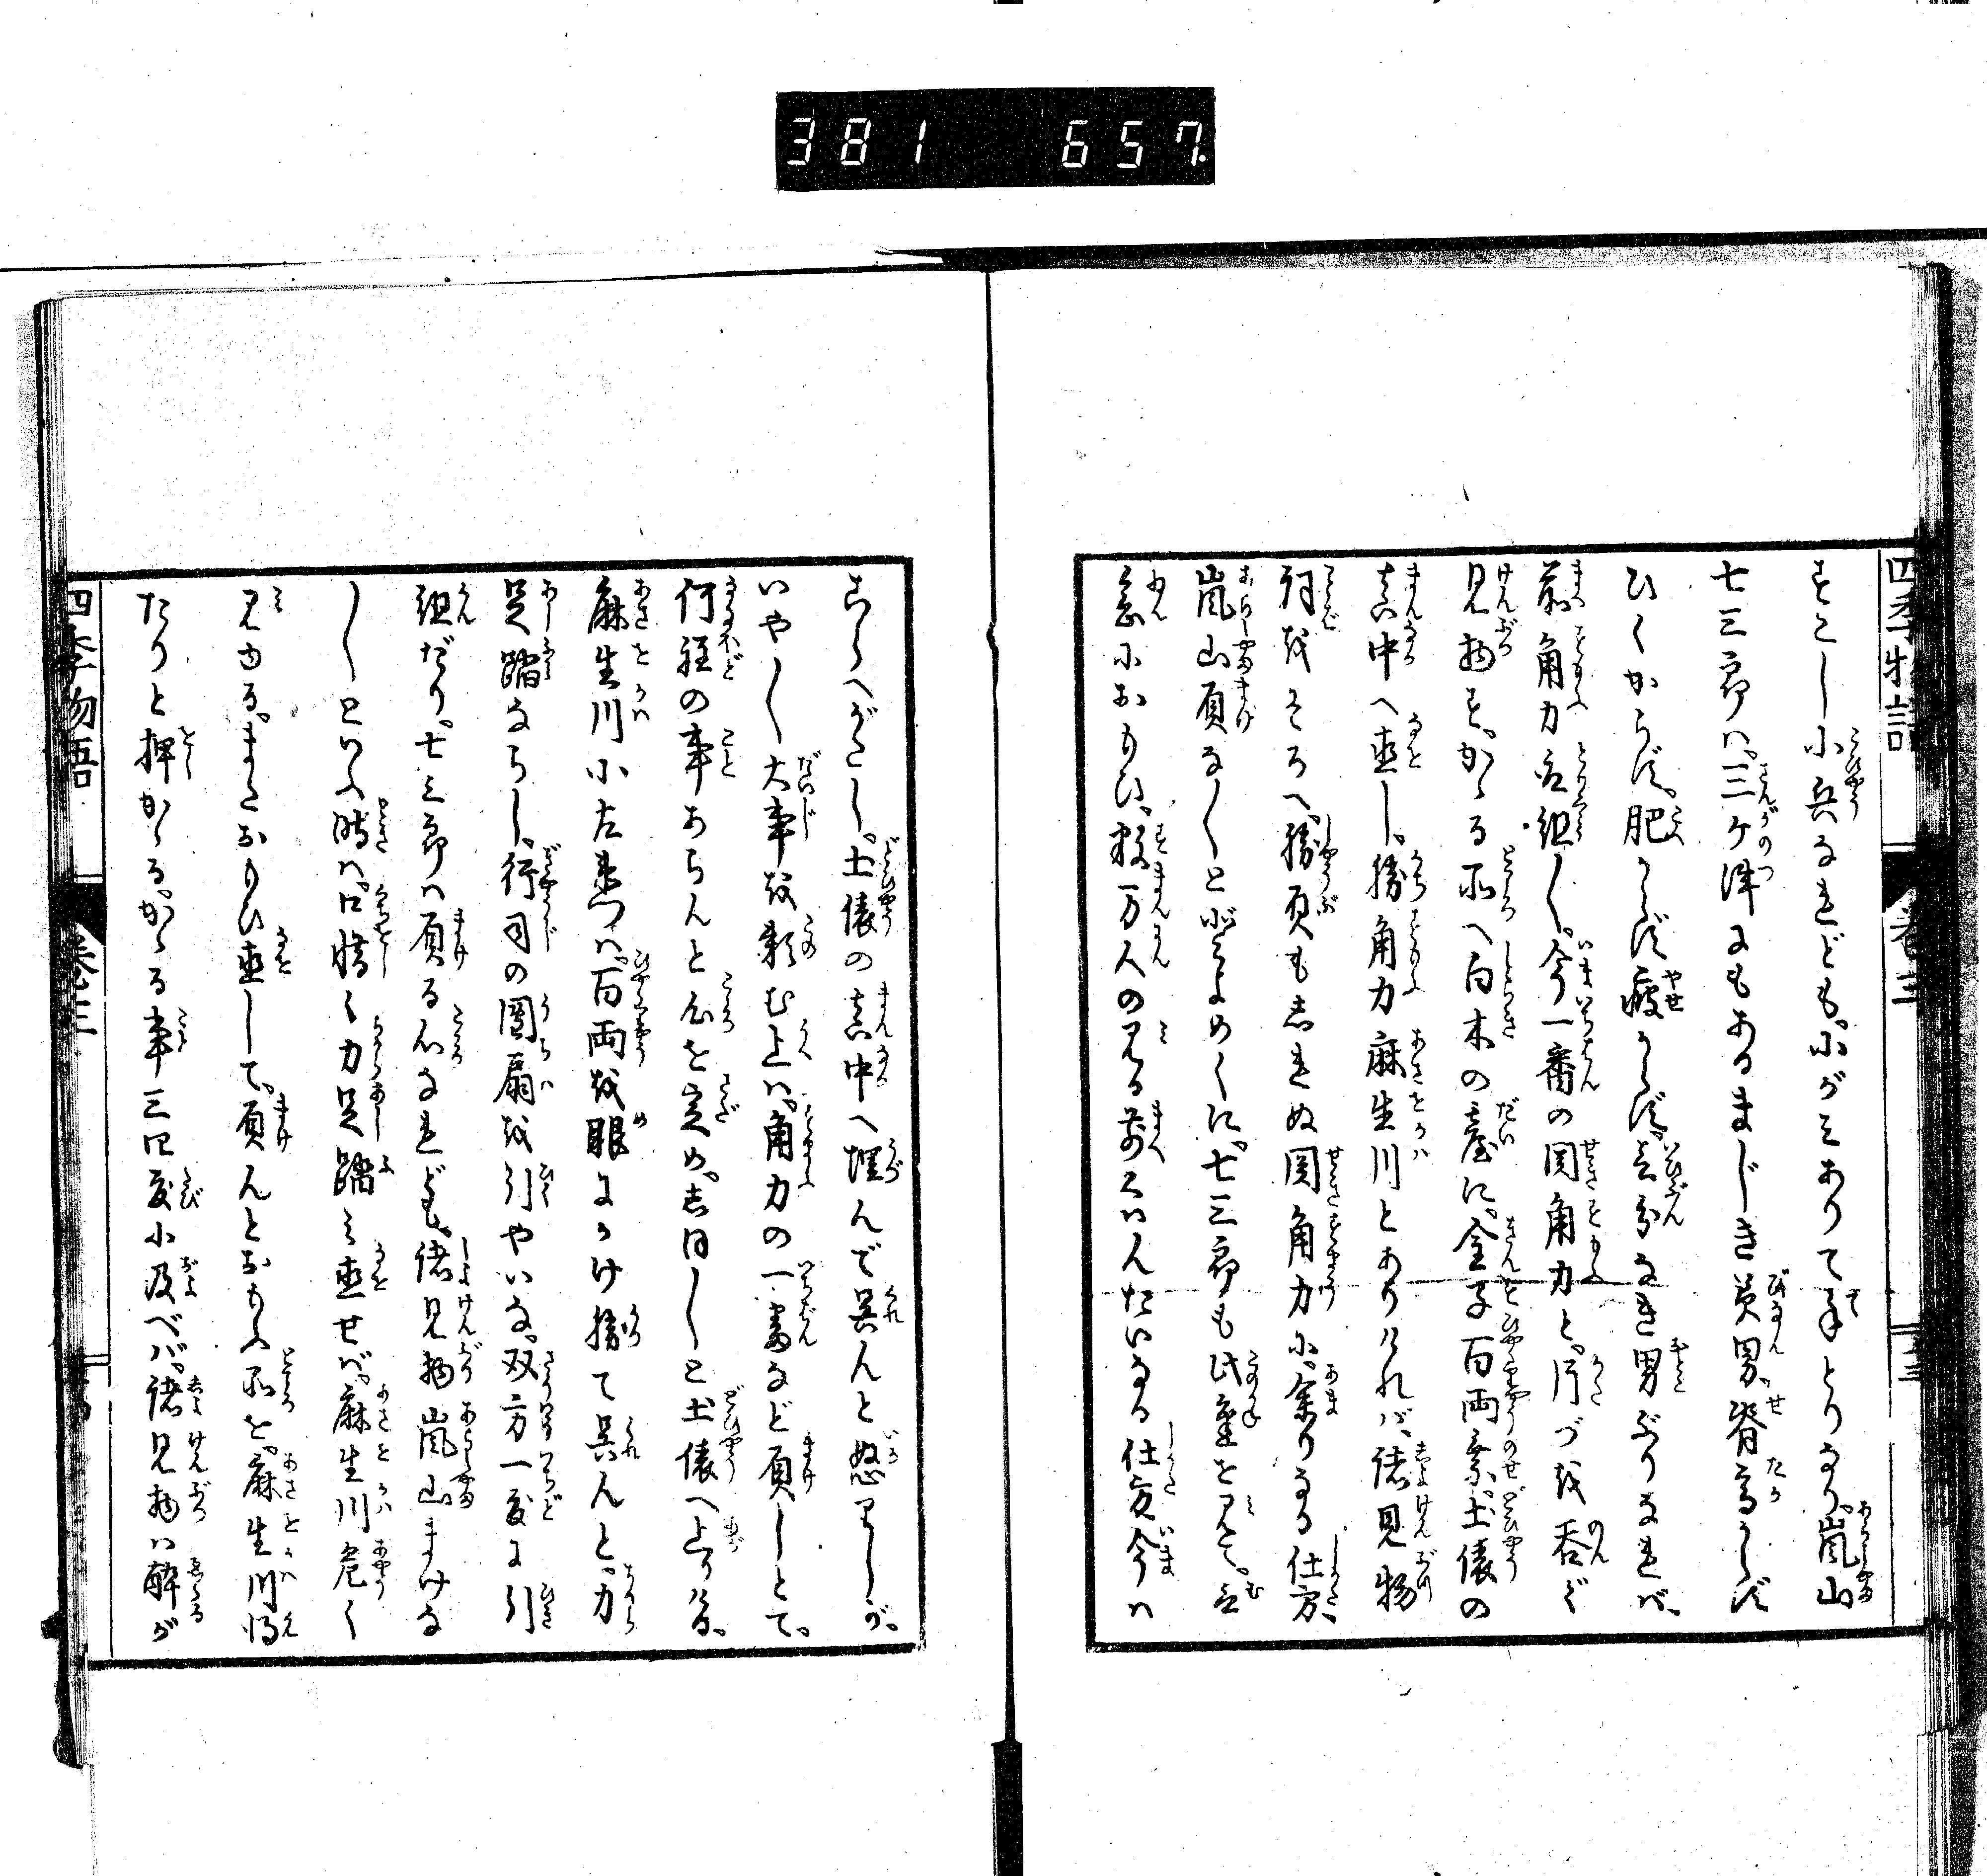 381 657
四季物語 巻三
すこし小兵なれども。小がミありて手とりなり。嵐山
七三郎ハ。三ケ津にもあるまじき美男。脊高からず
ひくからず。肥からず瘦からず。云分なき男ぶりなれバ。
前角力取組しく。今一番の関角力と。片づを呑で
見物す。かゝる所へ白木の臺に。金子百両乗。土俵の
真中へ直し。勝角力麻生川とありけれバ。諸見物
行をそろへ。勝負もしれぬ関角力に。余りなる仕方。
嵐山負な〳〵とどよめくに。七三郎も此臺を見て。
念におもひ。数万人のミる前といひ。たいなる仕方今ハ
こらへがたし。土俵の真中へ埋んで呉んと怒りしが。
いや〳〵大事を頼む上ハ。角力の一番など負しとて。
何程の事あらんと心を定め。しほ〳〵と土俵へ上りける。
麻生川小左衛門ハ。百両を眼にかけ勝て呉んと。力
足踏ならし。行司の團扇を引やいな。双方一度に引
組だり。七三郎ハ負る心なれども。諸見物嵐山まけな
〳〵といふ時ハ。口惜く力足踏ミ直せバ。麻生川危く
見ゆる。またおもひ直して。負んとおもふ所を。麻生川得
たりと押かゝる。かゝる事三四度に及べバ。諸見物ハ酔が
四季物語 巻三